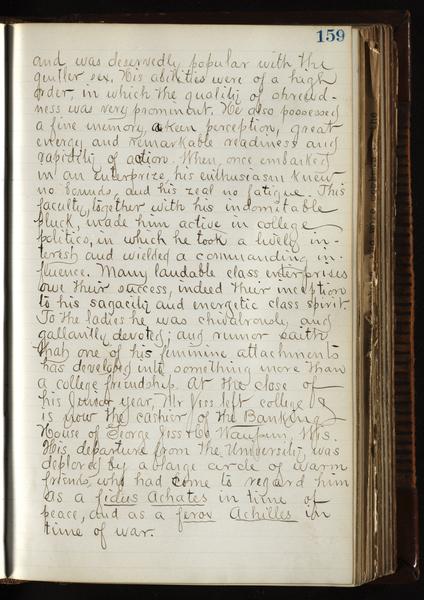 159
and was deservedly popular with the
gentler sex. His abilities were of a high
order, in which the quality of shrewd-
ness was very prominent. He also possessed
a fine memory, a keen perception, great
energy and remarkable readiness and
rapidity of action. When, once embarked
in an enterprize, his enthusiasm knew
no bounds, and his zeal no fatigue. This
faculty, together with his indomitable
pluck, made him active in college
politics, in which he took a lively in-
terest and wielded a commanding in-
fluence. Many laudable class enterprises
owe their success, indeed their inception
to his sagacity and energetic class spirit.
To the ladies he was chivalrously and
gallantly devoted; and rumor saith
that one of his feminine attachments
has developed into something more than
a college friendship. At the close of
his Junior year, Mr Jess left college &
is now the cashier of the Banking
House of George Jess & Co Waupun, Wis.
His departure from the University was
deplored by a large circle of warm
friends, who had come to regard him
as a fidus Achates in time of
peace, and as a ferox Achilles in
time of war.